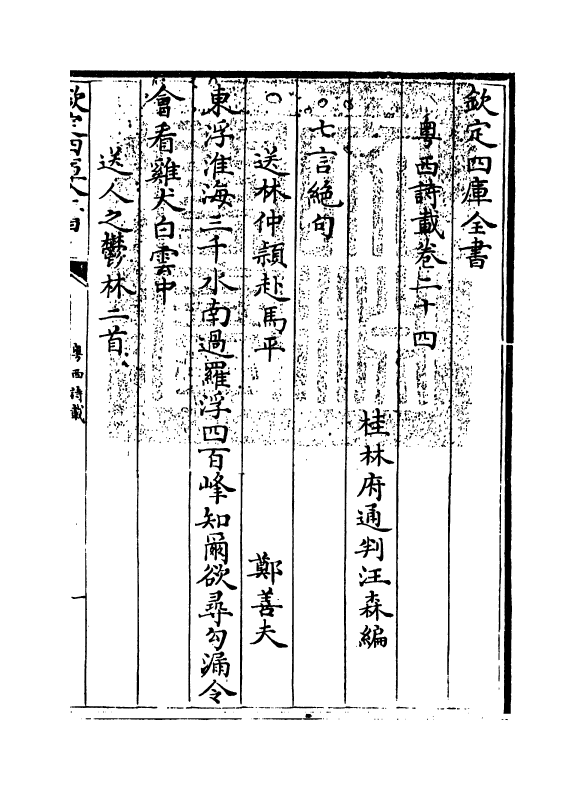 欽定四庫全書
粵西詩載卷二十四
桂林府通判汪森編
七言絶句
送林仲頴赴馬平　鄭善夫
東浮淮海三千水南過羅浮四百峰知爾欲尋勾漏令
會看雞犬白雲中
送人之鬱林二首
欽定四庫全書
粵西詩載
一